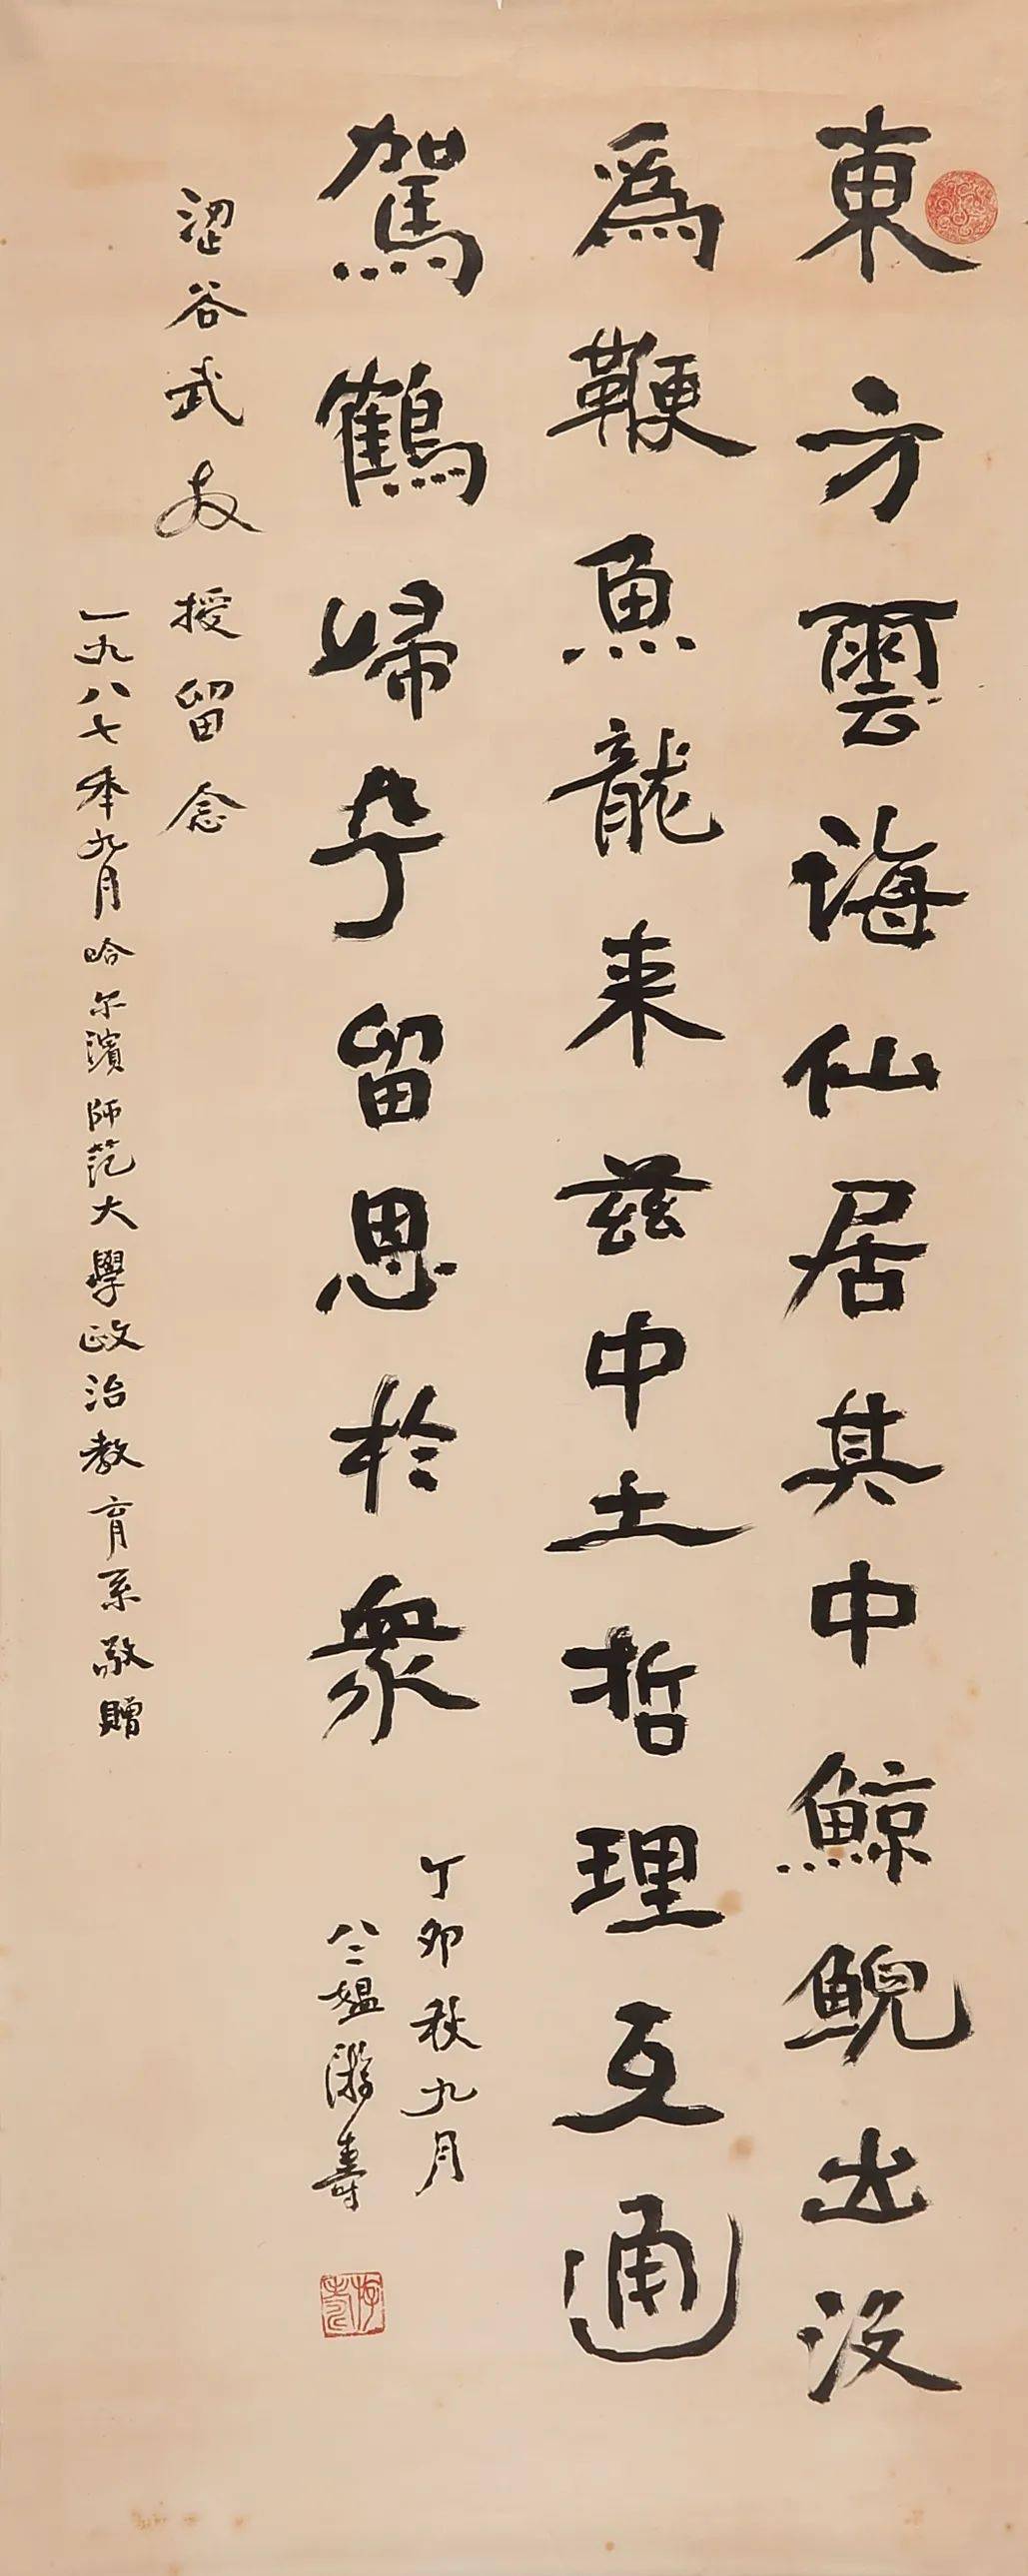 東方雲海仙居其中鯨鯢出沒
為鞭魚龍来兹中土哲理互通
駕鶴歸乎留思於衆
丁卯秋九月
八二媪游壽
澀谷武教授留念
一九八七年九月哈尔濱师范大學政治教育系敬贈